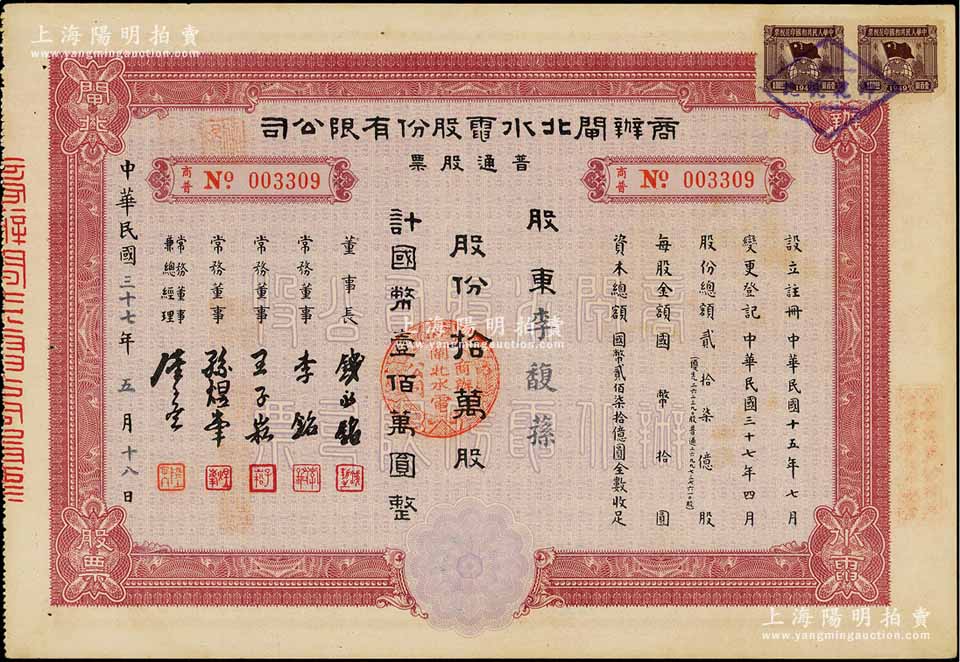 上海陽明拍賣
www.yangmingauction.com
商辦閘北水電股份有限公司
普通股票
商普 No. 003309
商普 No. 003309
設立註冊 中華民國十五年七月
變更登記 中華民國三十七年四月
股份總額貳拾柒億股
每股金額國幣拾圓
資本總額 國幣貳佰柒拾億圓全數收足
股東李馥蓀
股份拾萬股
計國幣壹佰萬圓整
董事長 錢永銘
常務董事 李銘
常務董事 王子崧
常務董事 孫煜峯
常務董事兼總經理
中華民國三十七年五月十八日
閘北
商辦
股票
水電
中華人民共和國印花稅票
中華人民共和國印花稅票
1949
1949
上海陽明拍賣
www.yangmingauction.com
上海陽明拍賣
www.yangmingauction.com